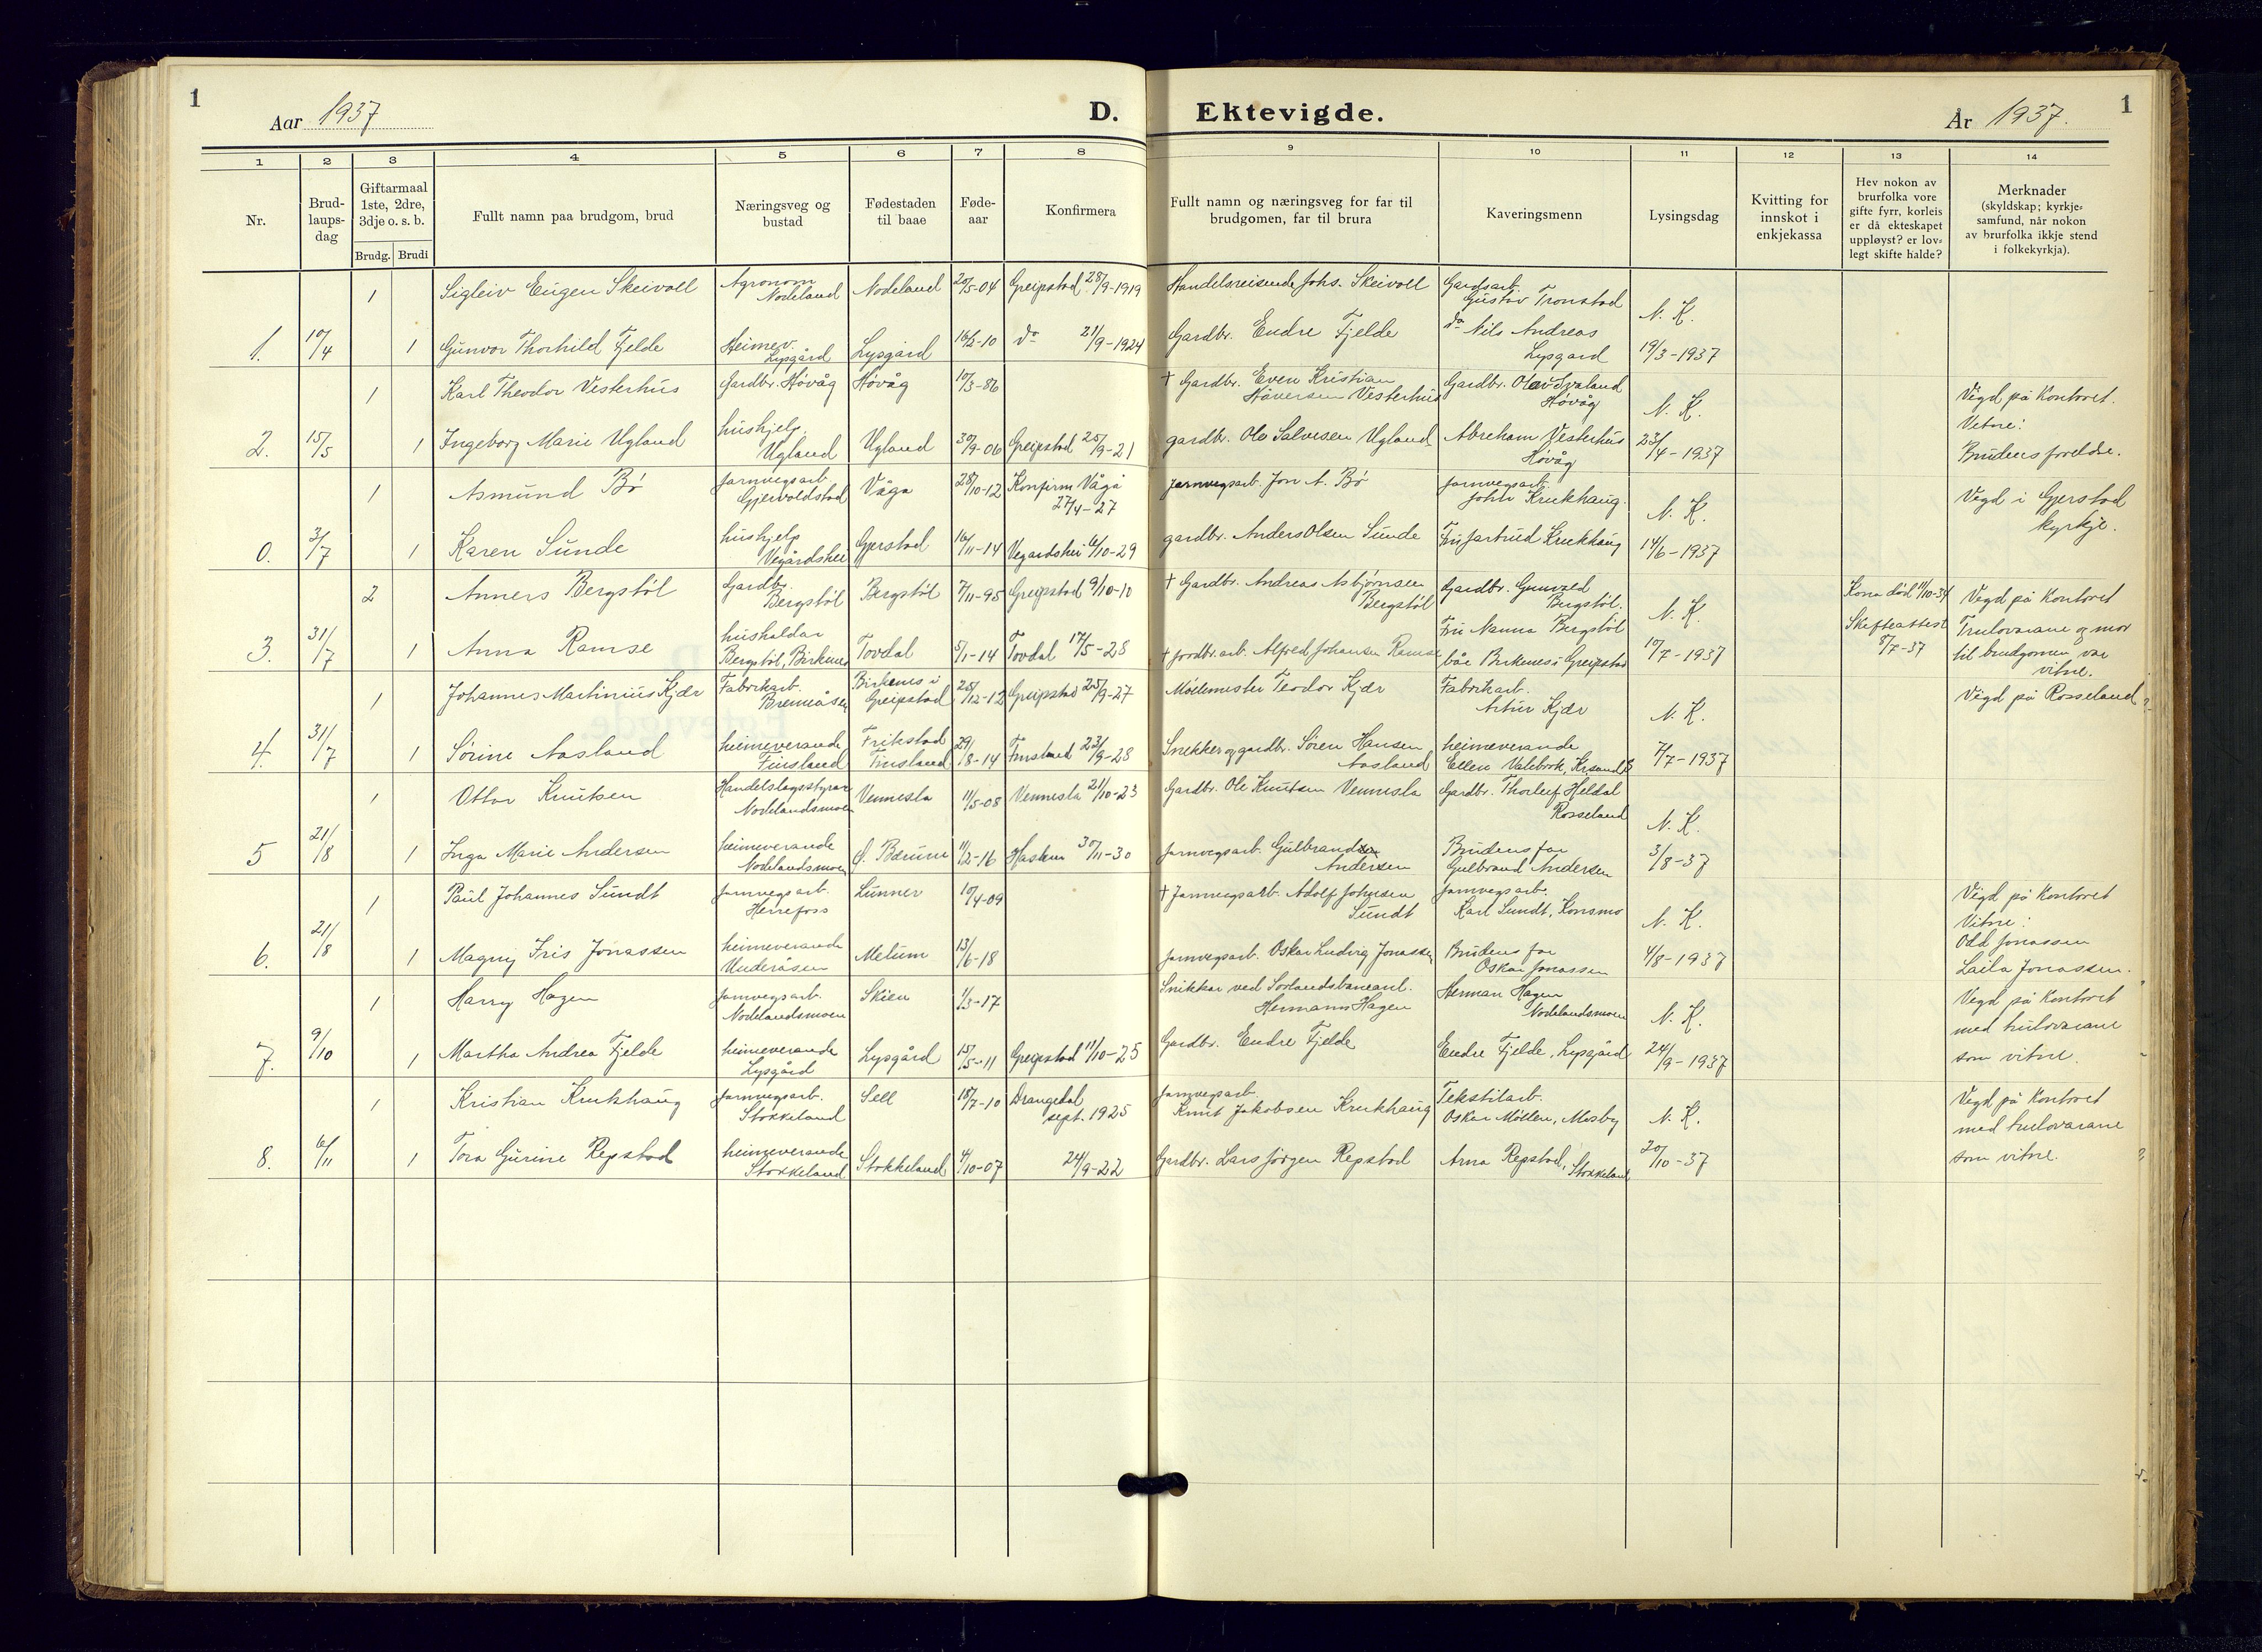 1
Aar 1937
D. Ektevigde.
År 1937.
1
1 2 3 4 5 6 7 8 9 10 11 12 13 14
Nr.
Brud-
laups-
dag
Giftarmaal
1ste, 2dre,
3dje o. s. b.
Brudg. Brudi
Fullt namn paa brudgom, brud
Næringsveg og
bustad
Fødestaden
til baae
Føde-
aar
Konfirmera
Fullt namn og næringsveg for far til
brudgomen, far til brura
Kaveringsmenn
Lysingsdag
Kvitting for
innskot i
enkjekassa
Hev nokon av
brurfolka vore
gifte fyrr, korleis
er då ekteskapet
uppløyst? er lov-
legt skifte halde?
Merknader
(skyldskap; kyrkje-
samfund, når nokon
av brurfolka ikkje stend
i folkekyrkja).
1 Sigleiv Eugen Skeivoll Agronom Nodeland Nodeland 20/5-04 Greipstad 28/9-1919 Handelsreisende Johs. Skeivoll Gardsarb. Gustav Tronstad N. K.
1. 10/4 1 Gunvor Thorhild Fjelde Heimev. Lysgård Lysgård 16/2-10 do 21/9-1924 Gardbr. Endre Fjelde do Nils Andreas Lysgard 19/3-1937
1 Karl Theodor Vesterhus Gardbr. Høvåg Høvåg 10/3-86 † Gardbr. Even Kristian Håversen Vesterhus Gardbr. Olav Svaland Høvåg N. K. Vigd på Kontoret. Vitne:
2. 15/5 1 Ingeborg Marie Ugland hushjelp Ugland Ugland 30/9-06 Greipstad 25/9-21 gardbr. Ole Salvesen Ugland Abreham Vesterhus Høvåg 23/4-1937 Brudens foreldre.
1 Asmund Bø jarnvegsarb. Gjervoldstad Våga 28/10-12 Konfirm Vågå 27/4-27 jarnvegsarb. Jon A. Bø jarnvegsarb. John Krukhaug. N. K. Vigd i Gjerstad kyrkje.
0. 3/7 1 Karen Sunde hushjelp Vegårdshei Gjerstad 16/11-14 Vegardshei 6/10-29 gardbr. Anders Olsen Sunde Fru Jartrud Krukhaug 14/6-1937
2 Anners Bergstøl Gardbr. Bergstøl Bergstøl 7/11-95 Greipstad 9/10-10 † Gardbr. Andreas Asbjørnsen Bergstøl Gardbr. Gunvald Bergstøl. N. K. Kona død 11/10-34 Vigd på Kontoret
3. 31/7 1 Anna Ramse husholdar Bergstøl, Birkenes Tovdal 5/1-14 Tovdal 17/5-28 † jordbr.arb. Alfred Johansen Ramse Fru Nanna Bergstøl båe Birkenes i Greipstad 10/7-1937 Skifteattest 8/7-37 Trulovarane og mor til brudgomen var vitne.
1 Johannes Martinius Kjær Fabrikarb. Bremeåsen Birkenes i Greipstad 25/12-12 Greipstad 25/9-27 Møllemester Teodor Kjær Fabrikarb. Artur Kjær N. K. Vigd på Rosseland
4. 31/7 1 Sørine Aasland heimeverande Finsland Frikstad Finsland 29/8-14 Finsland 23/9-28 Snekker og gardbr. Søren Hansen Aasland heimeverande Ellen Valebrok, Kr.sand S 7/7-1937
1 Ottar Knutsen Handelslagsstyrar Nodelandsmoen Vennesla 11/5-08 Vennesla 21/10-23 Gardbr. Ole Knutsen Vennesla Gardbr. Thorleif Heldal Rosseland N. K.
5 21/8 1 Inga Marie Andersen heimeverande Nodelandsmoen Ø. Bærum 11/2-16 Haslum 30/11-30 jarnvegsarb. Gulbrand Andersen Brudens far Gulbrand Andersen 3/8-37
1 Paul Johannes Sundt jarnvegsarb. Herrefoss Lunner 10/4-09 † Jarnvegsarb. Adolf Johnsen Sundt jarnvegsarb. Karl Sundt, Konsmo N. K. Vigd på Kontoret Vitne:
6. 21/8 1 Magny Iris Jonassen heimeverande Underåsen Melum 13/6-18 jarnvegsarb. Oskar Ludvig Jonassen Brudens far Oskar Jonassen 4/8-1937 Odd Jonassen Laila Jonassen.
1 Harry Hagen jarnvegsarb. Nodelandsmoen Skien 1/3-17 Snikkar ved Sørlandsbaneanl. Hermann Hagen Herman Hagen Nodelandsmoen N. K. Vigd på Kontoret med trulovarane
7. 9/10 1 Martha Andrea Fjelde heimeverande Lysgård Lysgård 15/5-11 Greipstad 11/10-25 Gardbr. Endre Fjelde Endre Fjelde, Lysgård 24/9-1937 som vitne.
1 Kristian Krukhaug jarnvegsarb. Stokkeland Sell 18/7-10 Drangedal sept. 1925 jarnvegsarb. Knut Jakobsen Krukhaug Tekstilarb. Oskar Møllen, Mosby N. K. Vigd på Kontoret med trulovarane
8. 6/11 1 Tora Gurine Repstad heimeverande Stokkeland Stokkeland 4/10-07 24/9-22 Gardbr. Lars Jørgen Repstad Arna Repstad, Stokkeland 20/10-37 som vitne.